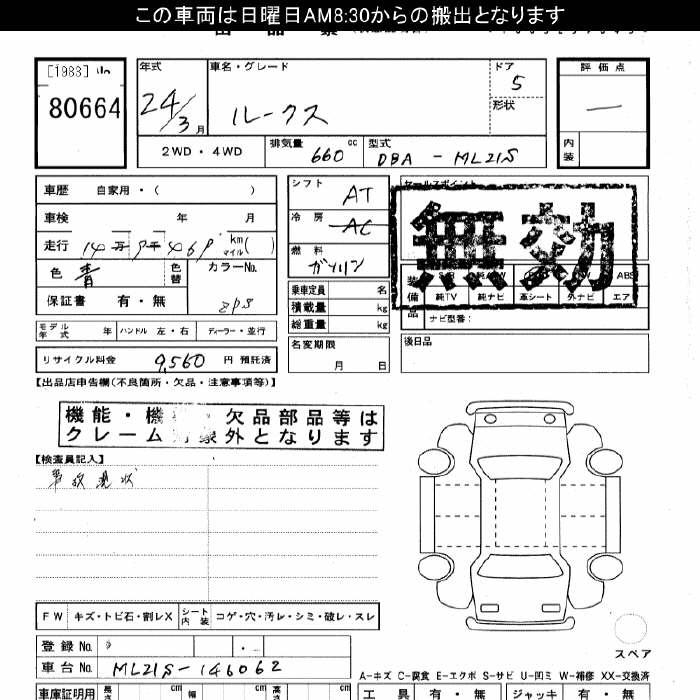 この車両は日曜日AM8:30からの搬出となります
[1983]
80664
年式
24/3月
車名・グレード
ルークス
ドア
5
形状
評価点
—
内装
2WD・4WD
排気量 660 cc
型式 DBA-ML21S
車歴 自家用・( )
車検 年 月
走行 14万 千469 km マイル ( )
色 青 色替 カラーNo. ZPS
保証書 有・無
シフト AT
冷房 AC
燃料 ガソリン
乗車定員 名
積載量 kg
総重量 kg
名変期限 月 日
セールスポイント
無効
装備品
ABS
純TV 純ナビ 革シート 外ナビ エア
ナビ型番:
後日品
モデル年式 年 ハンドル 左・右 ディーラー・並行
リサイクル料金 9,560 円 預託済
【出品店申告欄(不良箇所・欠品・注意事項等)】
機能・機 欠品部品等は
クレーム 象外となります
【検査員記入】
事故現状
FW キズ・トビ石・割レX シート内装 コゲ・穴・汚レ・シミ・破レ・スレ
登録No.
車台No. ML21S-146062
スペア
A-キズ C-腐食 E-エクボ S-サビ U-凹ミ W-補修 XX-交換済
車庫証明用 長さ cm 幅 cm 高さ cm
工具 有・無 ジャッキ 有・無